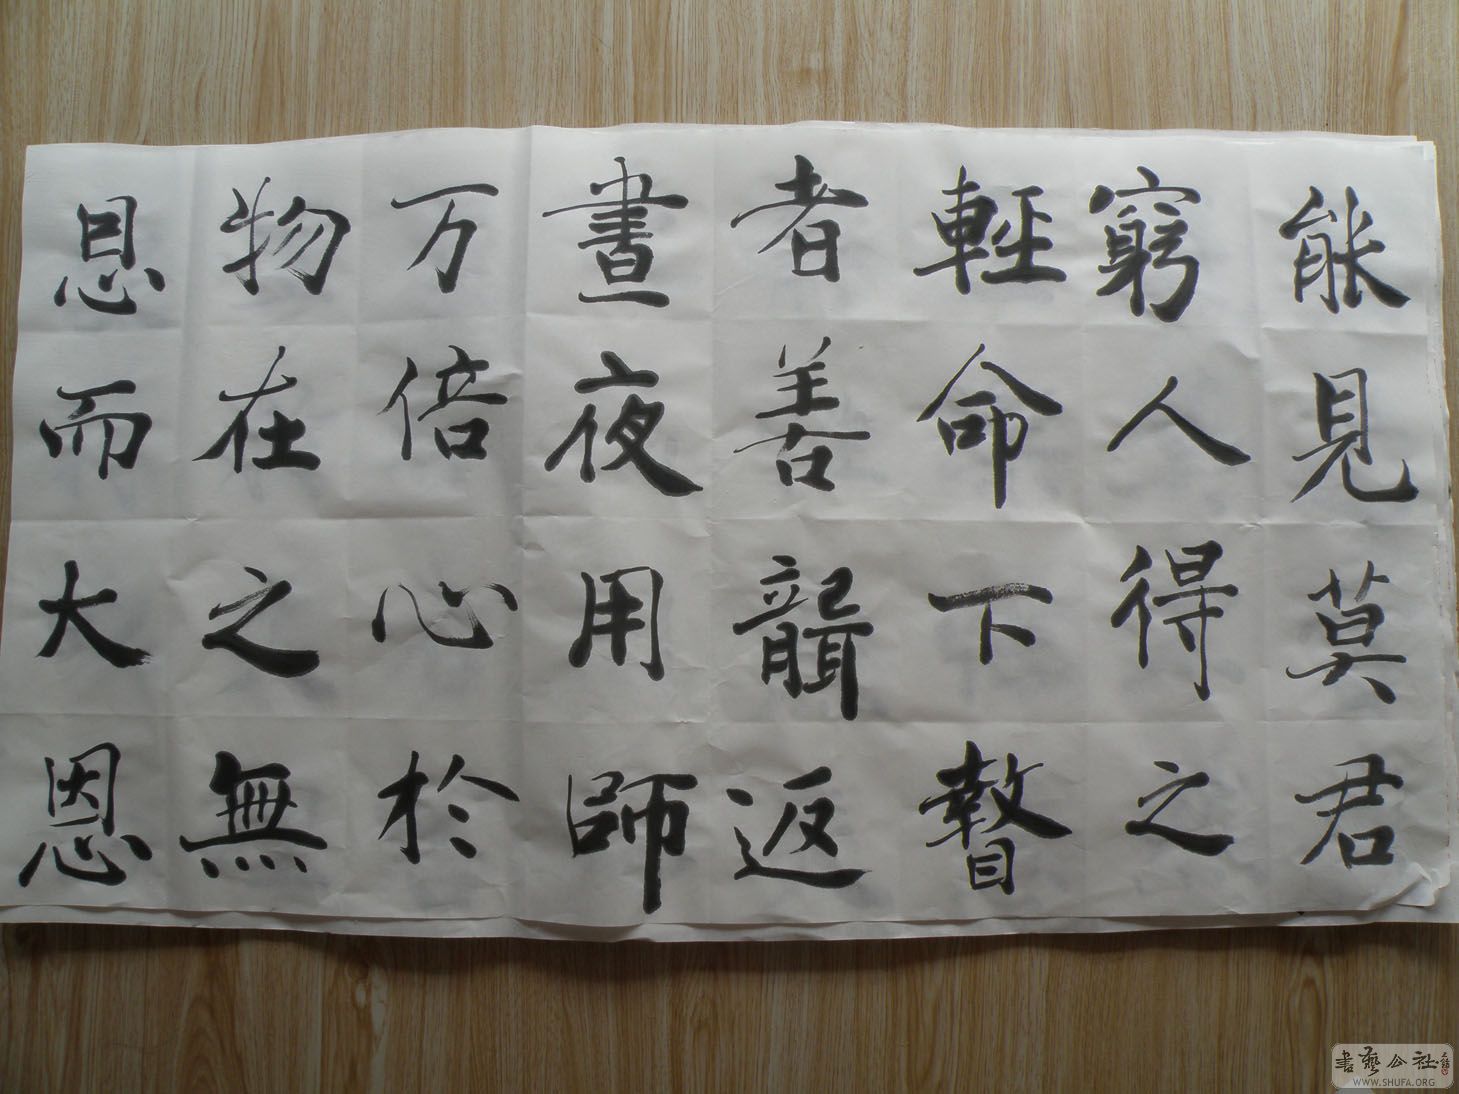 能見莫君
窮人得之
輕命下瞽
者善聾返
晝夜用師
万倍心於
物在之無
恩而大恩
書藝公社
WWW.SHUFA.ORG